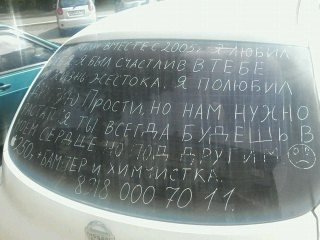 ВМЕСТЕ С 2005г. Я ЛЮБИЛ
Я БЫЛ СЧАСТЛИВ В ТЕБЕ
ЖЕСТОКА. Я ПОЛЮБИЛ
Прости, но нам нужно
ТЫ ВСЕГДА БУДЕШЬ В
СЕРДЦЕ НО ПОД ДРУГИМ
250л + БАМПЕР И ХИМЧИСТКА.
8 218 000 70 11.